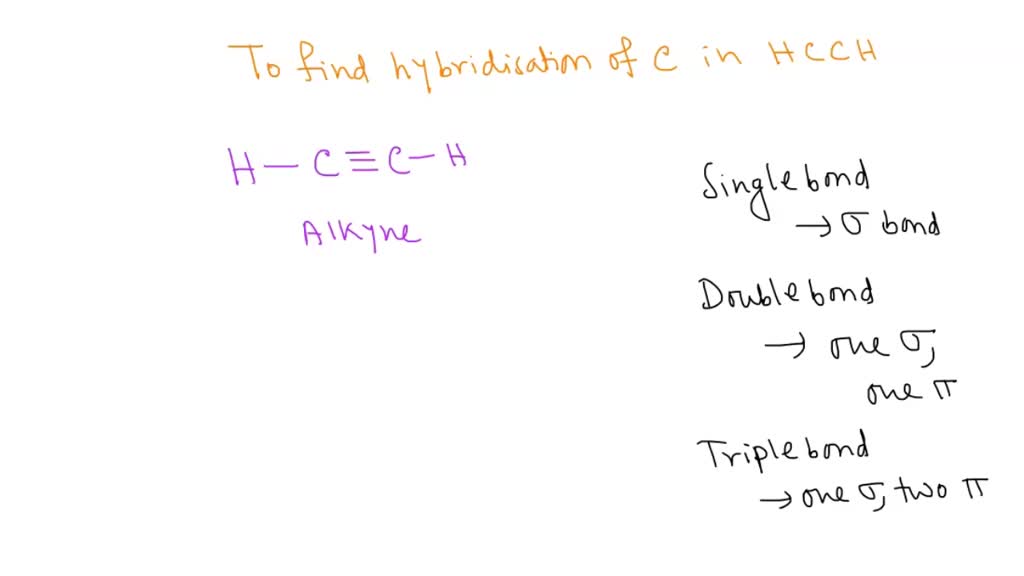 To find hybridisation of C in HCCH
H — C ≡ C — H
Alkyne
Single bond
→ σ bond
Double bond
→ one σ,
one π
Triple bond
→ one σ, two π